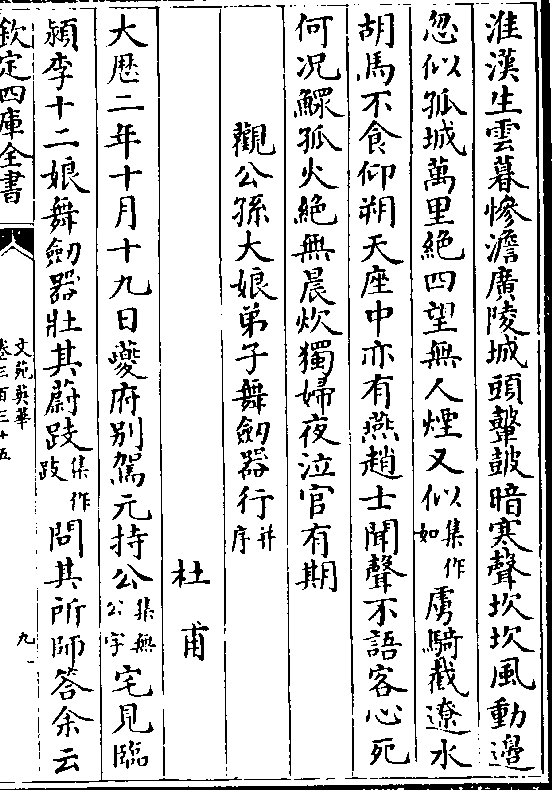 淮漢生雲暮慘澹廣陵城頭鼙鼓暗寒聲坎坎風動邊
忽似孤城萬里絶四望無人煙又似以集作如虜騎截遼水
胡馬不食仰朔天座中亦有燕趙士聞聲不語客心死
何况鰥孤火絶無晨炊獨婦夜泣官有期
觀公孫大娘弟子舞劎器行并序
杜甫
大厯二年十月十九日夔府别駕元持公集無公字宅見臨
潁李十二娘舞劎器壯其蔚跂集作跤問其所師答余云
欽定四庫全書
文苑英華
卷三百三十五
九